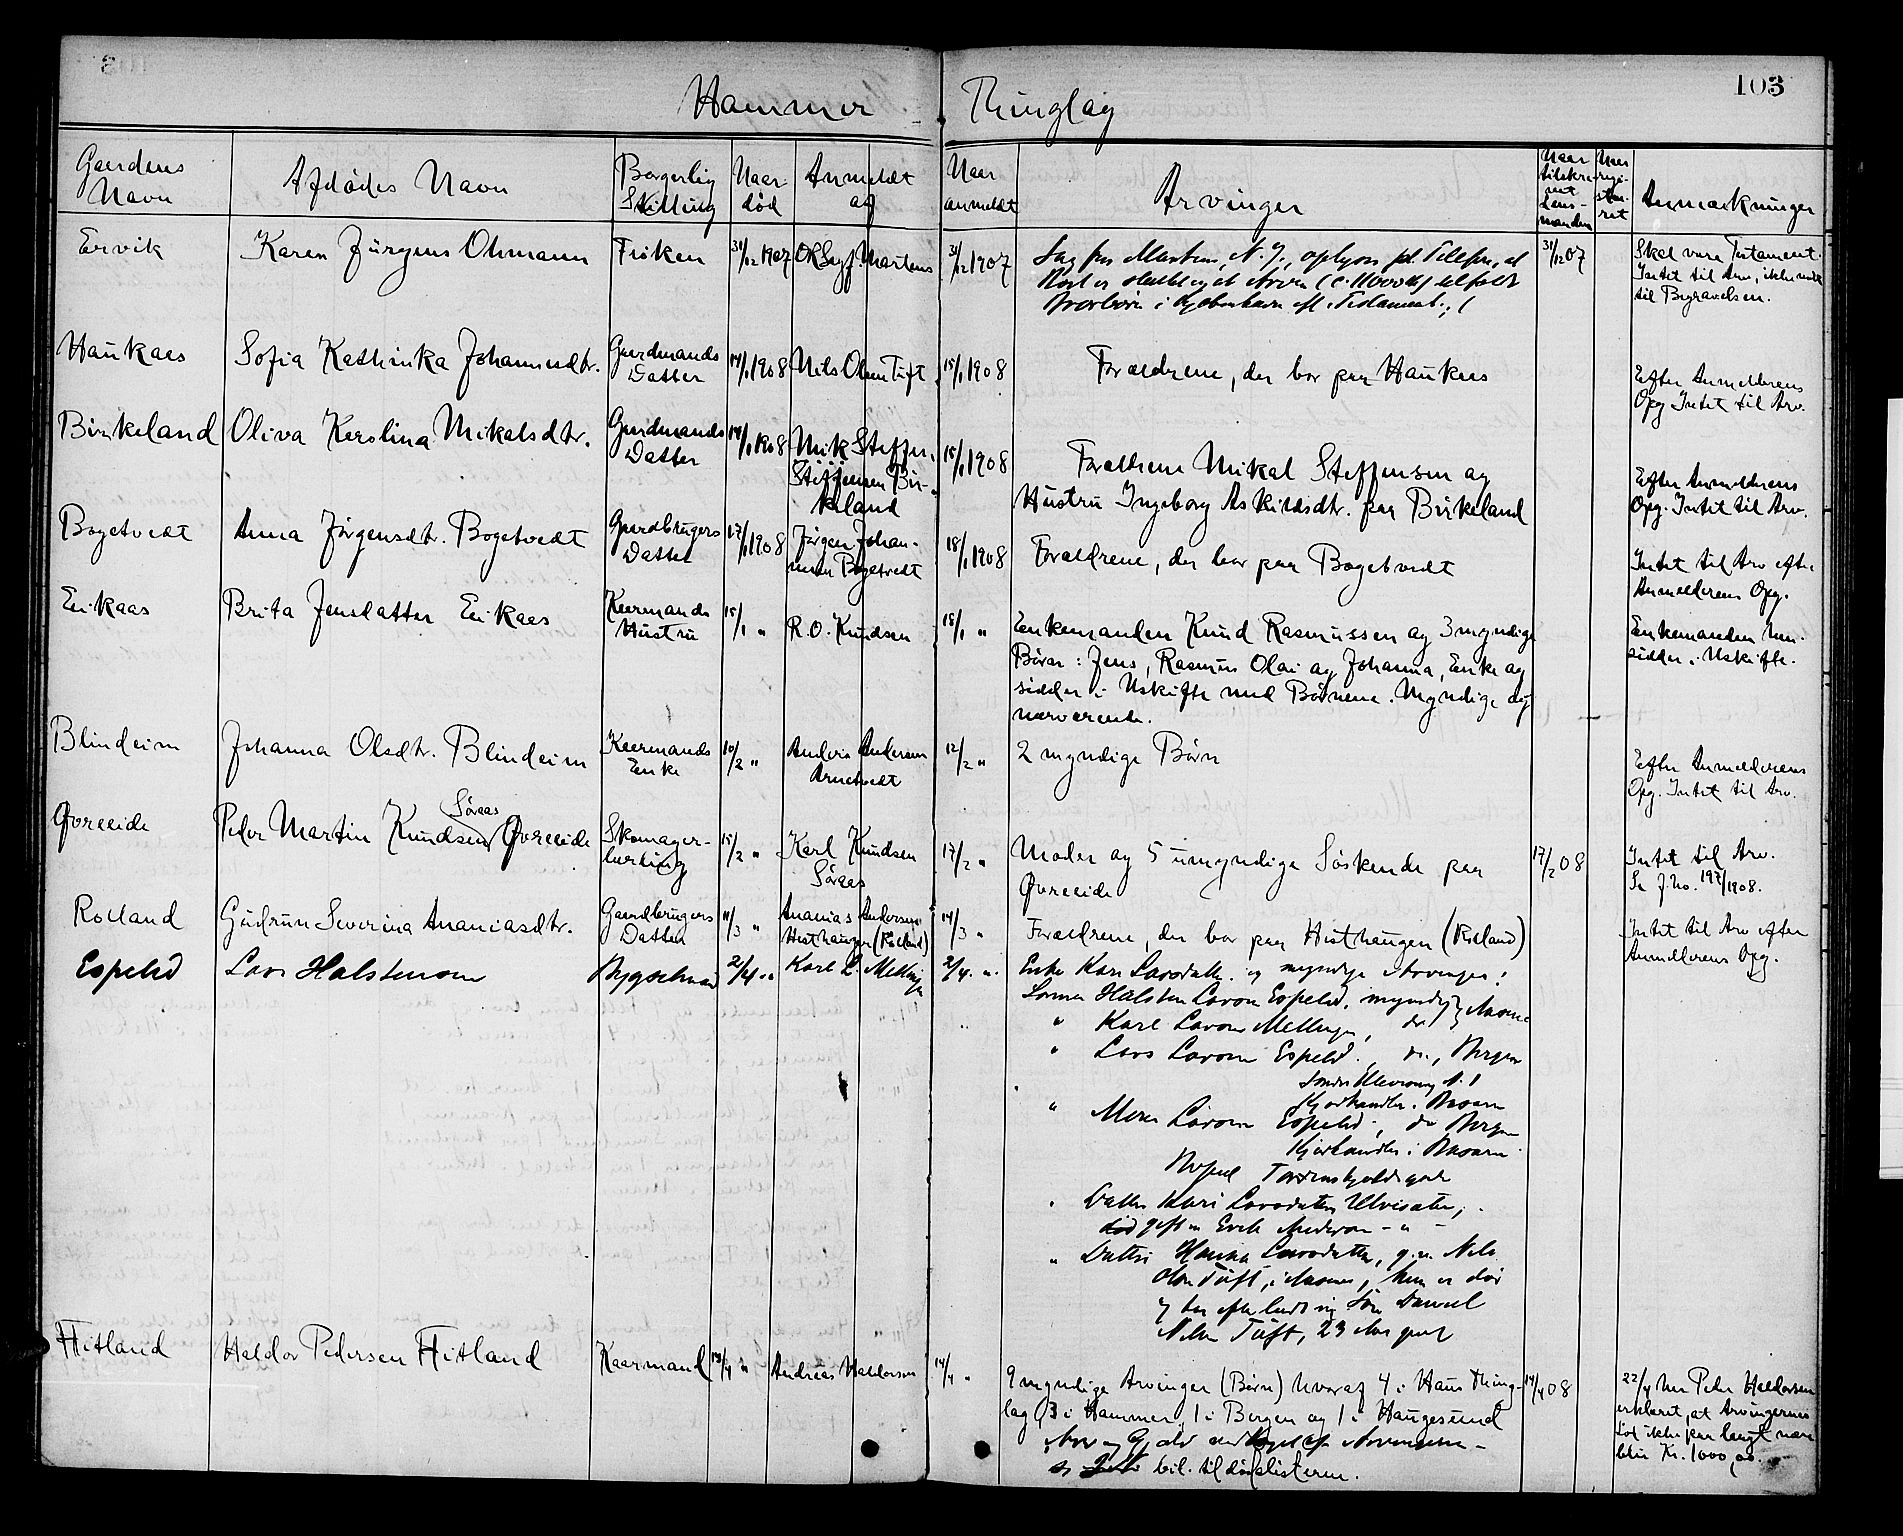 103
Hammer Thinglag
Gaardens Navn
Afdødes Navn
Borgerlig Stilling
Naar død
Anmeldt af
Naar anmeldt
Arvinger
Naar tilskrevet Lensmanden
Naar regi-steret
Anmærkninger
Ervik
Karen Jürgens Ohmann
Frøken
31/12 1907
Martens
31/12 1907
31/12 07
Skal være Testament.
Intet til Arv, ikke nok
til Begravelsen.
Haukaas
Sofia Kathinka Johannesdtr.
Gaardmands
Datter
14/1 1908
Nils Olsen Tuft
15/1 1908
Forældrene, der bor paa Haukaas
Efter Anmelderens
Opg Intet til Arv.
Birkeland
Oliva Karolina Mikalsdtr.
Gaardmands
Datter
14/1 1908
Mik Steffen
Steffensen Bir-
keland
15/1 1908
Forældrene Mikal Steffensen og
Hustru Ingeborg Askildsdtr. paa Birkeland
Efter Anmelderens
Opg. Intet til Arv.
Bogetvedt
Anna Jørgensdtr. Bogetvedt
Gaardbrugers
Datter
17/1 1908
Jørgen Johan-
nesen Bogetvedt
18/1 1908
Forældrene, der bor paa Bogetvedt
Intet til Arv efter
Anmelderens Opg.
Eikaas
Brita Jensdatter Eikaas
Kaarmands
Hustru
15/1 "
R. O. Knudsen
18/1 "
Enkemanden Knud Rasmussen og 3 myndige
Børn: Jens, Rasmus Olai og Johanna, Enke og
sidder i Uskifte med Børnene. Myndige og
nærværende.
Enkemanden hen-
sidder i Uskifte.
Blindeim
Johanna Olsdtr. Blindeim
Kaarmands
Enke
10/2 "
Anders Andersen
Arnetvedt
12/2 "
2 myndige Børn
Efter Anmelderens
Opg. Intet til Arv.
Øvreeide
Peder Martin Knudsen Søraas Øvreeide
Skomager-
lærling
15/2 "
Karl Knudsen
Søraas
17/2 "
Moder og 5 umyndige Søskende paa
Øvreeide
17/2 08
Intet til Arv.
Se J. No. 197/1908.
Rolland
Gudrun Severina Ananiasdtr.
Gaardbrugers
Datter
11/3 "
Ananias Andersen
Husthaugen (Rolland)
14/3 "
Forældrene, der bor paa Husthaugen (Rolland)
Intet til Arv efter
Anmelderens Opg.
Espelid
Lars Halstensen
Bygselmand
2/4 "
Karl L. Mellingen
2/4 "
Enke Kari Larsdatter og myndige Arvinger:
Sønnen Halsten Larsen Espelid, myndig, Aasane
" Karl Larsen Mellingen, do
" Lars Larsen Espelid, do., Bergen
" Larsen Espelid, do Bergen
Kjødhandler i Basaren
Bopæl Tordenskjoldsgade
" Datter Kari Larsdatter Ulvesæter,
gift m Erik Andersen - " -
" Datter Hanna Larsdatter, g. m. Nils
Olsen Tuft, i Aasane, hun er død
og har efterladt sig Søn Daniel
Nilsen Tuft, 23 Aar gml
Flitland
Haldor Pedersen Flitland
Kaarmand
13/4 "
Andreas Haldorsen
14/4 "
9 myndige Arvinger (Børn) hvoraf 4 i Haus Thing-
lag, 3 i Hammer, 1 i Bergen og 1 i Haugesund
Arv og Gjæld
bil. til dødslisterne.
14/4 08
22/4 har Peder Haldorsen
erklæret, at Arvingernes
Lod ikke paa langt nær
bliver Kr. 1000,00.